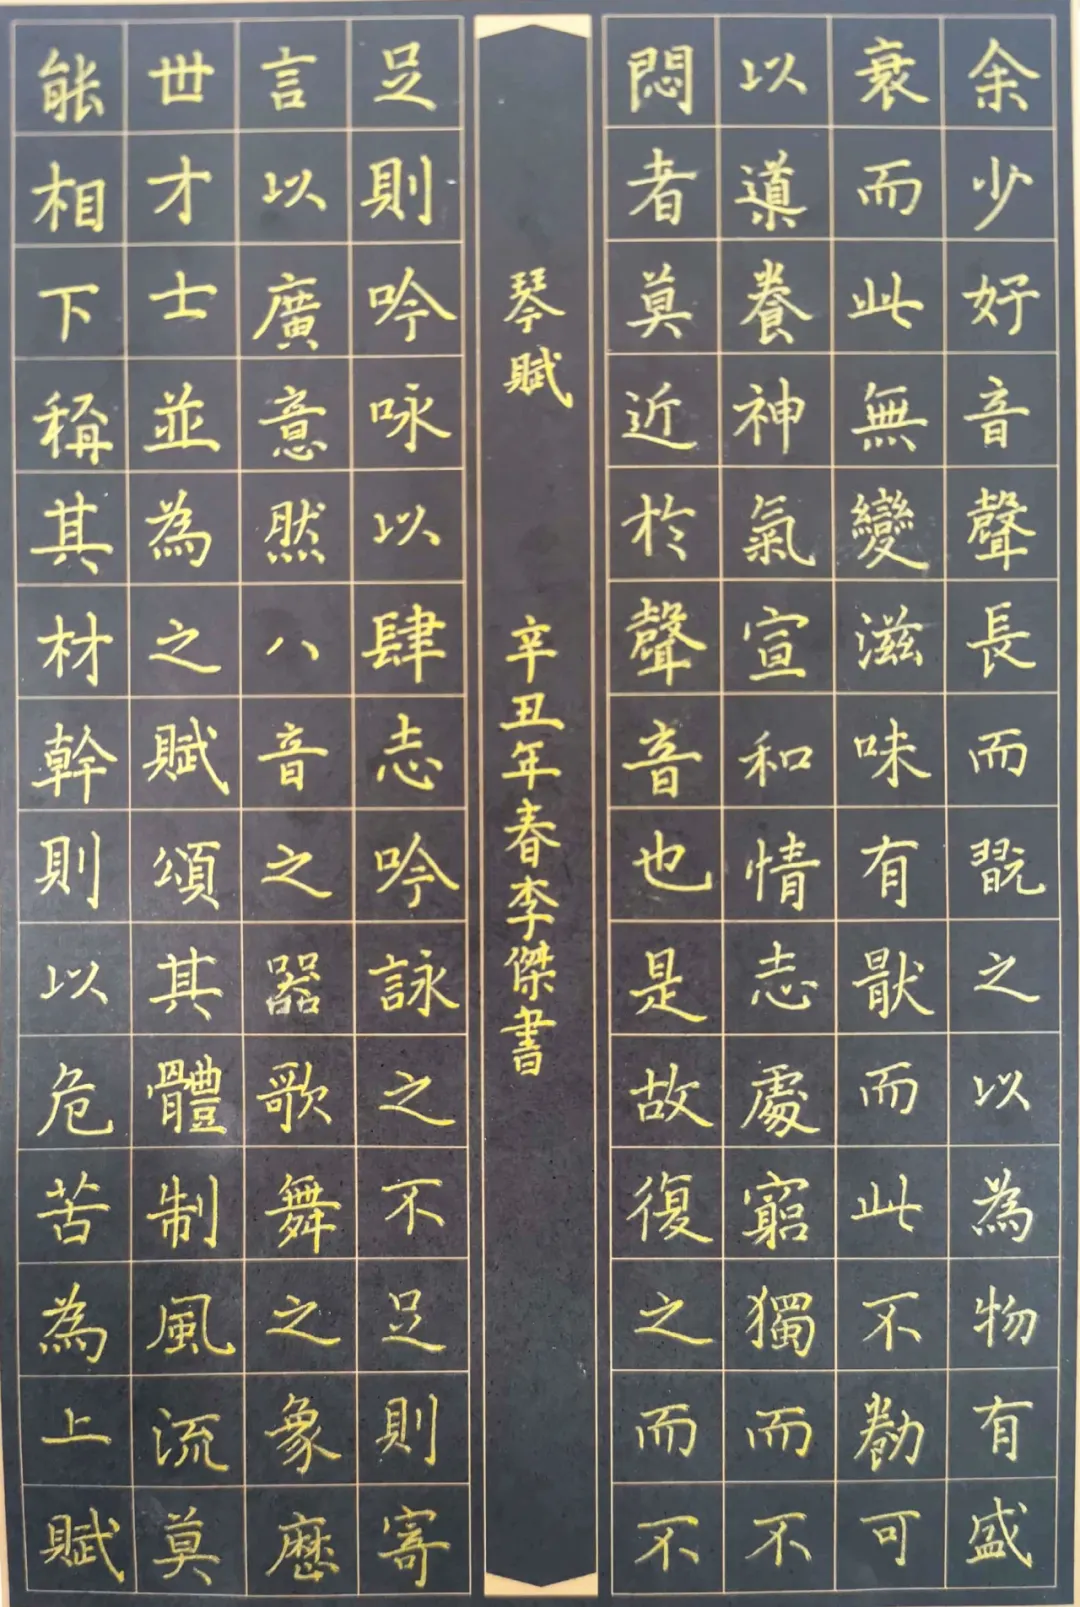 余少好音聲長而翫之以為物有盛
衰而此無變滋味有猒而此不勌可
以導養神氣宣和情志處窮獨而不
悶者莫近於聲音也是故復之而不
琴賦 辛丑年春李傑書
足則吟咏以肆志吟詠之不足則寄
言以廣意然八音之器歌舞之象歷
世才士並為之賦頌其體制風流莫
能相下稱其材幹則以危苦為上賦